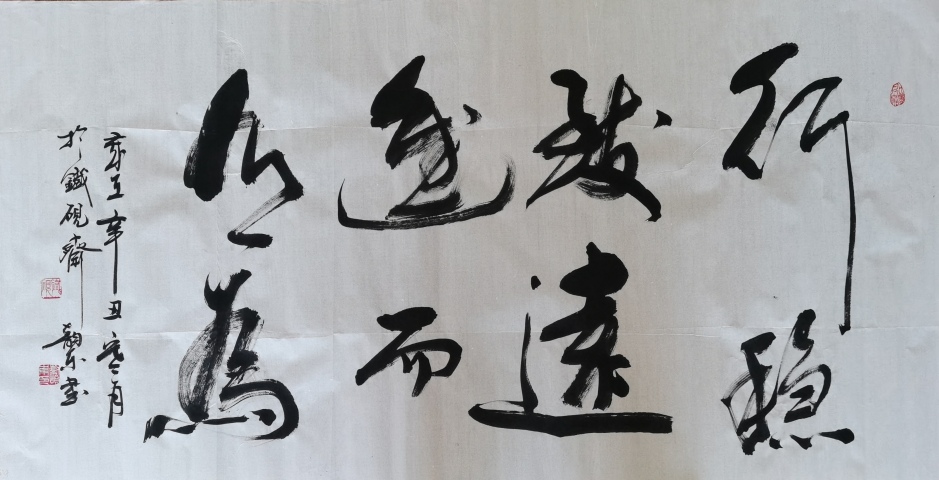 行穩
致遠
進而
有為
歲在辛丑月
於鐵硯齋 書